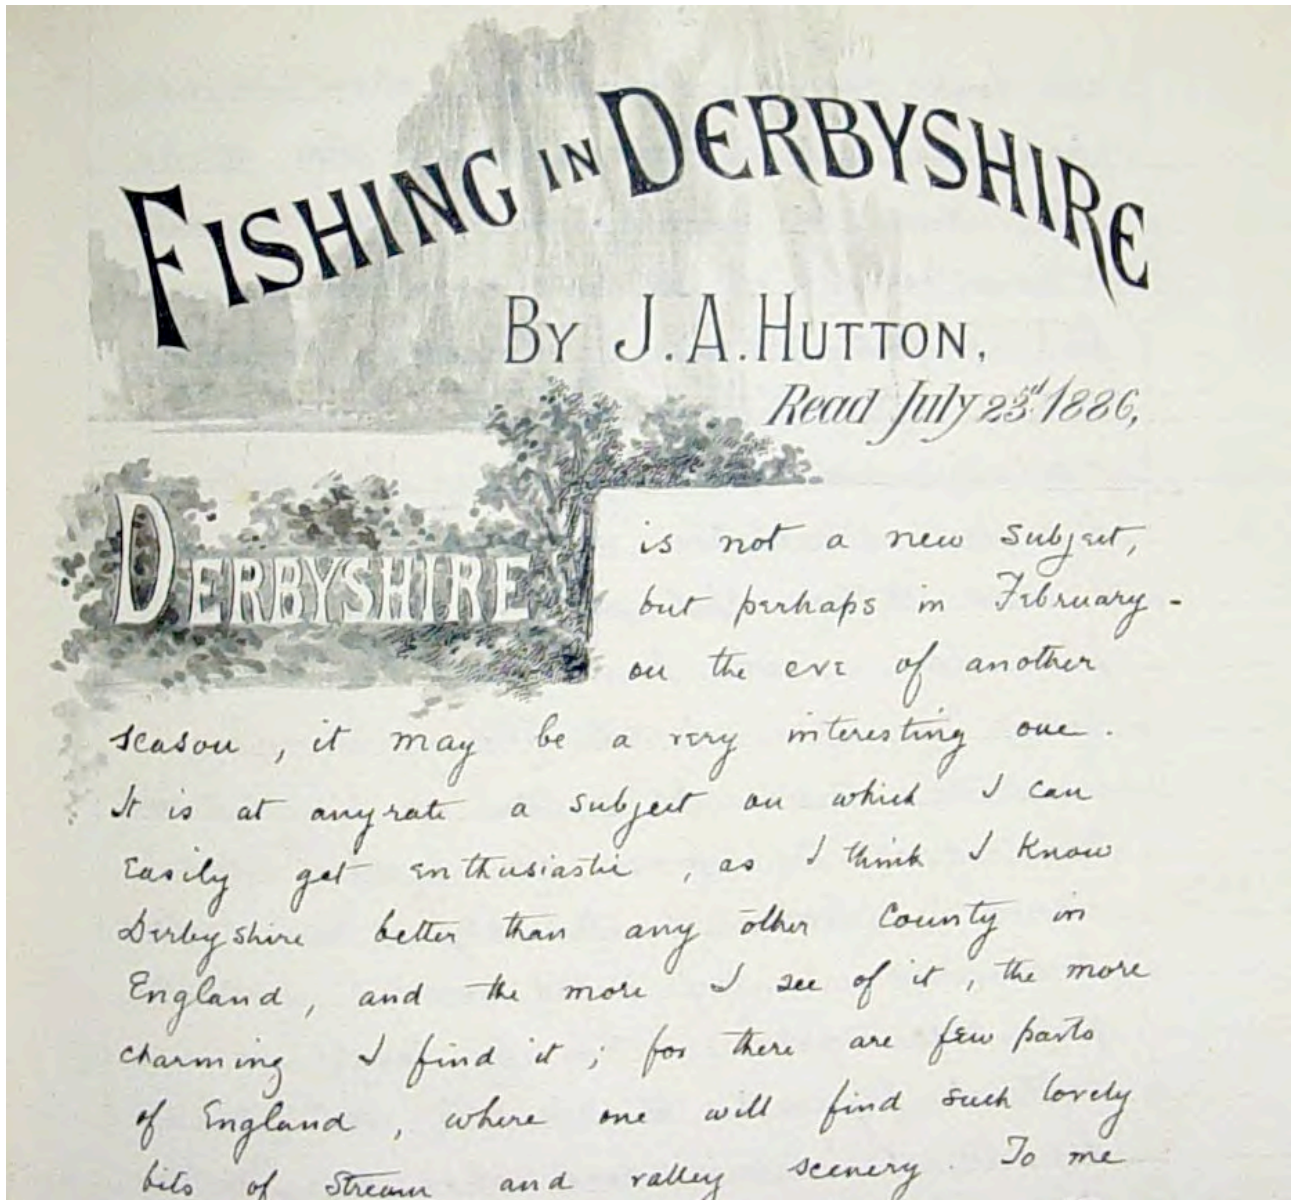 FISHING IN DERBYSHIRE
BY J. A. HUTTON.
Read July 23rd 1886,
DERBYSHIRE is not a new subject,
but perhaps in February -
on the eve of another
season, it may be a very interesting one.
It is at anyrate a subject on which I can
easily get enthusiastic, as I think I know
Derbyshire better than any other County in
England, and the more I see of it, the more
charming I find it; for there are few parts
of England, where one will find such lovely
bits of stream and valley scenery. To me